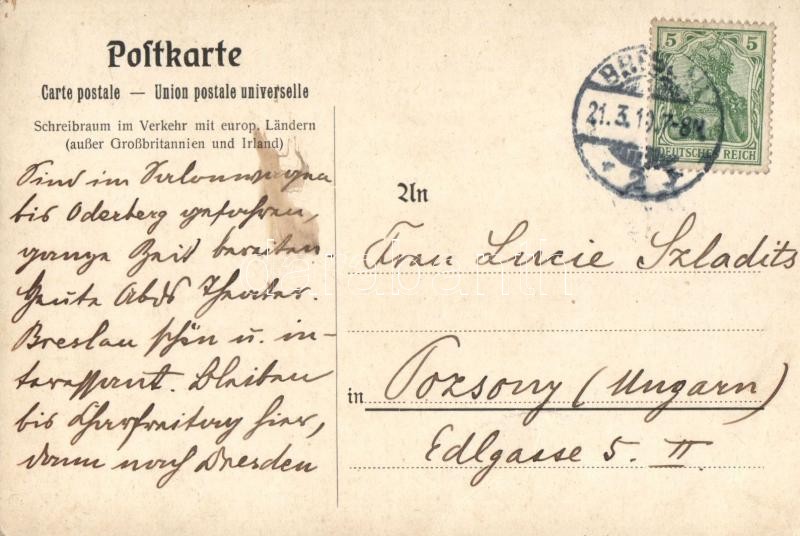 Postkarte
Carte postale — Union postale universelle
Schreibraum im Verkehr mit europ. Ländern
(außer Großbritannien und Irland)
Sind im Salonwagen
bis Oderberg gefahren,
ganze Zeit
Heute Abds Theater.
Breslau schön u. in-
teressant. Bleiben
bis Charfreitag hier,
dann nach Dresden
BRESLAU
21.3.10.7-8N
* 2
5 5
DEUTSCHES REICH
An
Frau Lucie Szladits
in Pozsony (Ungarn)
Edlgasse 5. II